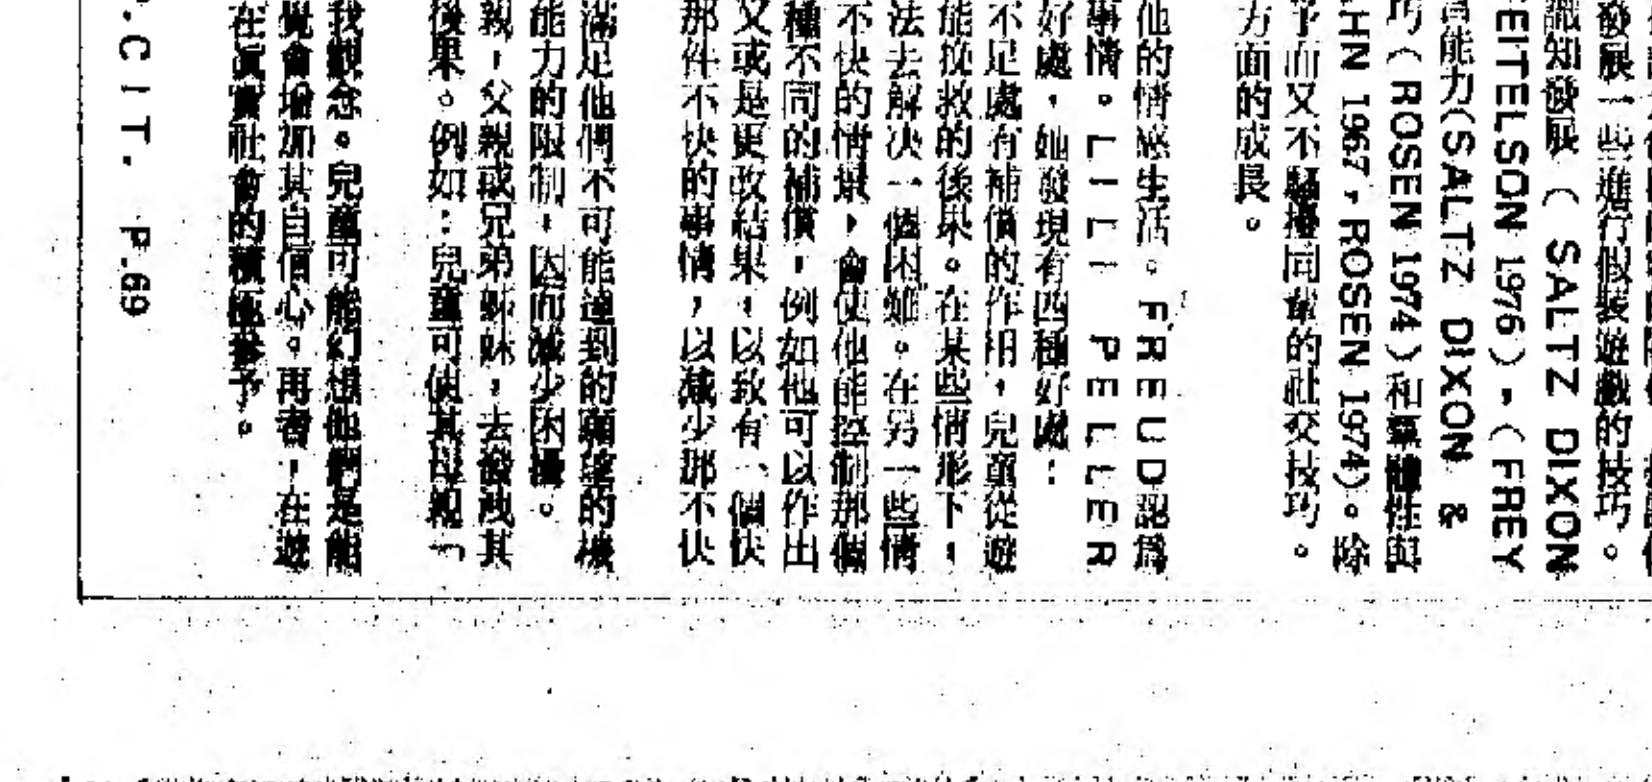 發展一些進行假裝遊戲的技巧。
識知發展（SALTZ DIXON
EITELSON 1976）,（FREY
習能力（SALTZ DIXON &
巧（ROSEN 1974）和羣體性與
HN 1967，ROSEN 1974）。除
予而又不騷擾同輩的社交技巧。
方面的成長。
他的情感生活。FREUD認爲
事情。LILI PELLER
好處，她發現有四種好處：
不足處有補償的作用，兒童從遊
能挽救的後果。在某些情形下，
法去解決一個困難。在另一些情
不快的情景，會使他能控制那個
種不同的補償，例如他可以作出
又或是更改結果，以致有一個快
那件不快的事情，以減少那不快
滿足他們不可能達到的願望的機
能力的限制，因而減少困擾。
親，父親或兄弟姊妹，去發洩其
後果。例如：兒童可使其母親「
我觀念。兒童可能幻想他們是能
覺會增加其自信心。再者，在遊
在真實社會的積極參予。
.CIT. P.69